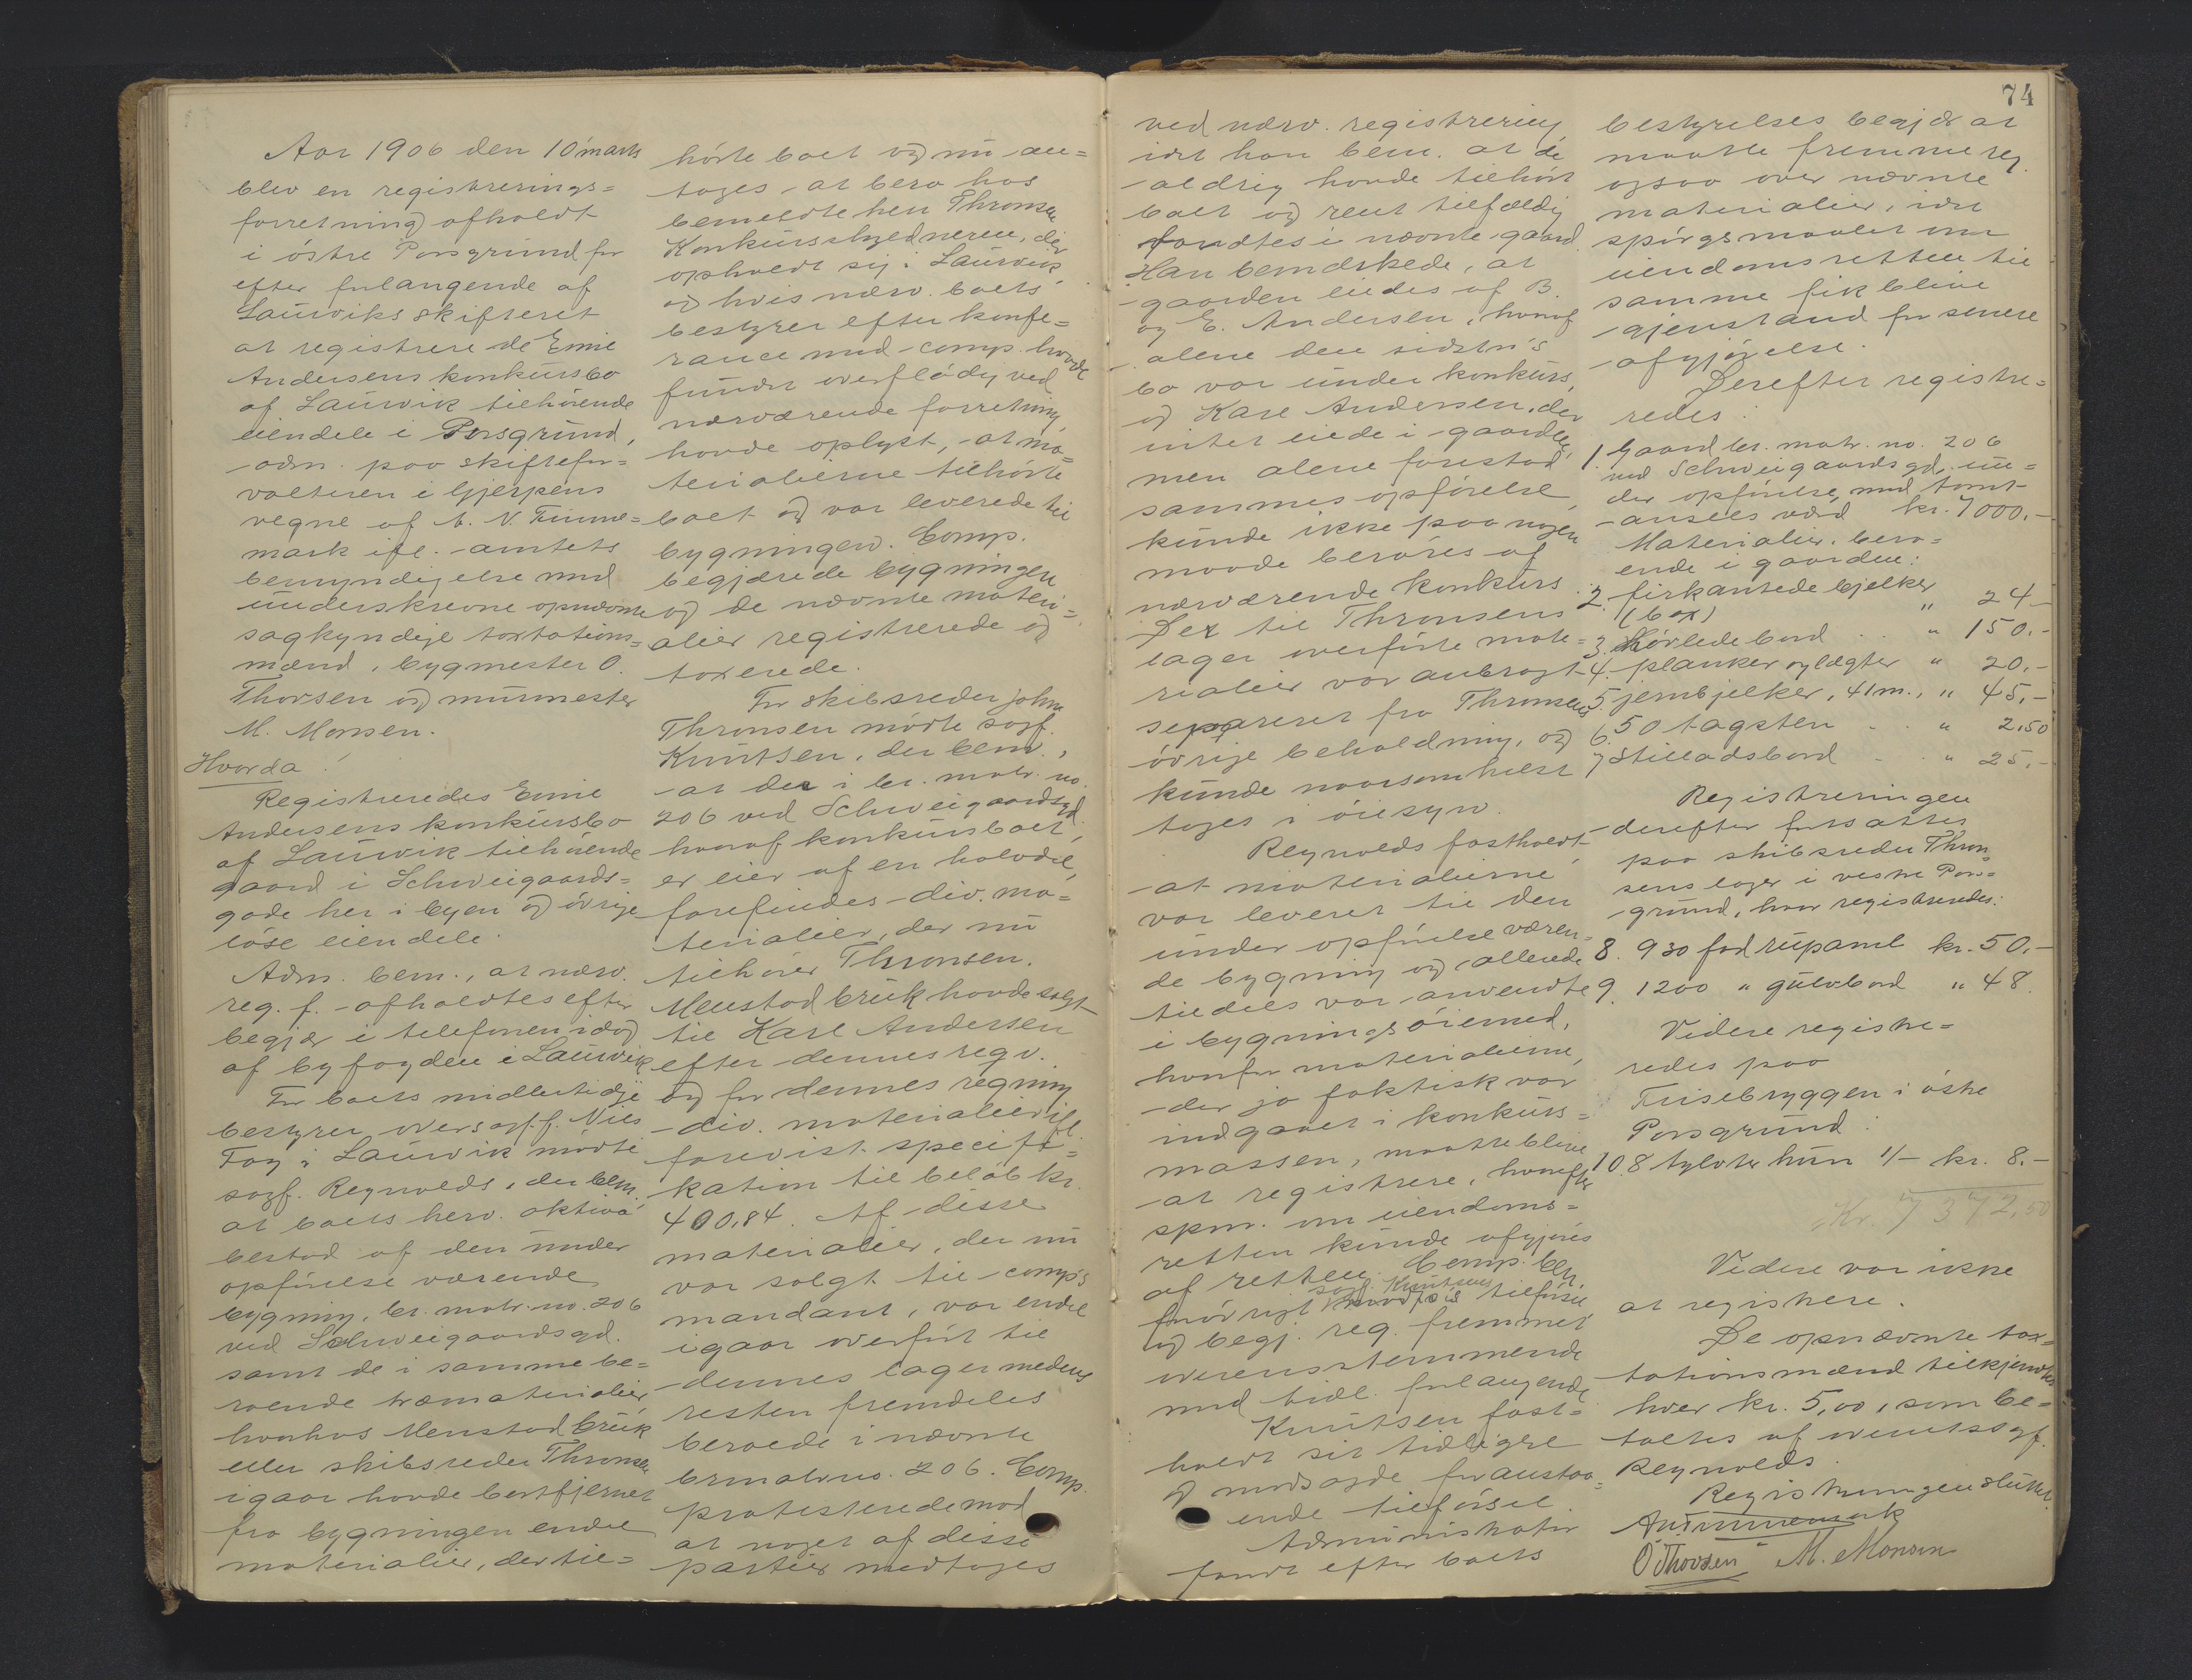 Aar 1906 den 10 marts
blev en registrerings-
forretning afholdt
i østre Porsgrund for
efter forlangende af
Laurviks skifteret
at registrere de Emil
Andersens konkursbo
af Laurvik tilhørende
eiendele i Porsgrund,
adm. paa skiftefor-
valteren i Gjerpens
vegne af A. N. Finme-
mark ifl. amtets
bemyndigelse med
underskrevne opnævnte
sagkyndige taxtations-
mænd, bygmester O.
Thorsen og murmester
M. Monsen.
Hvorda!
Registreredes Emil
Andersens konkursbo
af Laurvik tilhørende
gaard i Schweigaards-
gade her i byen og øvrige
løse eiendele.
Adm. bem., at nærv.
reg. f. afholdtes efter
begjær i telefonen idag
af byfogden i Laurvik
For boets midlertidige
bestyrer oversagf. Nils
Tag i Laurvik mødte
sagf. Reynolds, der bem.
at boets herv. aktiva
bestod af den under
opførelse værende
bygning, br. matr. no. 206
ved Schweigaardsgd.
samt de i samme be-
roende træmaterialier
hvorhos Menstad brug
eller skibsreder Thronsen
igaar havde bortfjernet
fra bygningen endel
materialier, der til-
hørte boet og nu an-
toges at bero hos
bemeldte hen Thronsen
Konkursskyldneren, der
opholdt sig i Laurvik
og hvis nærv. boets
bestyrer efter konfe-
rance med comp. havde
fundet overflødig ved
nærværende forretning,
havde oplyst, at ma-
terialierne tilhørte
boet og var leverede til
bygningen. Comp.
begjærede bygningen
og de nævnte materi-
alier registrerede og
taxerede.
For skibsreder John
Thronsen mødte sagf.
Knutsen, der bem.,
at der i br. matr. no.
206 ved Schweigaardsgd.
hvoraf konkursboet
er eier af en halvdel,
forefindes div. ma-
terialier, der nu
tilhører Thronsen.
Menstad bruk havde solgt
til Karl Andersen
efter dennes reqv.
og for dennes regning
div. materialier ifl.
forevist specifi-
kation til beløb kr.
400,84. Af disse
materialier, der nu
var solgt til comp's
mandant, var endel
igaar overført til
dennes lager medens
resten fremdeles
beroede i nævnte
br matr no. 206. Comp.
protesterede mod
at noget af disse
partier medtoges
74
ved nærv. registrering
idet han bem. at de
aldrig havde tilhørt
boet og rent tilfældig
fandtes i nævnte gaard.
Han bemærkede, at
gaarden eiedes af B.
og E. Andersen, hvoraf
alene den sidstn's
bo var under konkurs,
og Karl Andersen, der
intet eiede i gaarden
men alene forestod
sammes opførelse,
kunde ikke paa nogen
maade berøres af
nærværende konkurs.
Det til Thronsens
lager overførte mate-
rialier var anbragt
separeret fra Thronsens
øvrige beholdning, og
kunde naarsomhelst
tages i øiesyn.
Reynolds fastholdt
at materialierne
var leveret til den
under opførelse væren-
de bygning og allerede
tildels var anvendte
i bygningsøiemed,
hvorfor materialierne,
der jo faktisk var
indgaaet i konkurs-
massen, maatte blive
at registrere, hvorefter
spm. om eiendoms-
retten kunde afgjøres
af retten. Comp. ben.
forøvrigt sagf. Knutsens tilførsel
og begj. reg. fremmet
overensstemmende
med tidl. forlangende
Knutsen fast-
holdt sit tidligere
og modsagde foranstaa-
ende tilførsel.
Administrator
fandt efter boets
bestyrelses begjær at
maatte fremme reg.
ogsaa over nævnte
materialier, idet
spørgsmaalet om
eiendomsretten til
samme fik blive
gjenstand for senere
afgjørelse.
Derefter registre-
redes:
1. Gaard br. matr. no. 206
ved Schweigaardsgd, un-
der opførelse, med tomt
ansees værd kr. 7000.-
Materialier, bero-
ende i gaarden:
2. firkantede bjelker
(box) " 24.-
3. Høvlede bord . . " 150.-
4. planker og lægter " 20.-
5. jernbjelker, 41 m., " 45,-
6. 50 tagsten . . " 2,50
7 Stilladsbord . . " 25.-
Registreringen
derefter fortsattes
paa skibsreder Thron-
sens lager i vestre Pors-
grund, hvor registreredes:
8. 930 fod rupanel kr. 50.-
9. 1200 " gulvbord " 48.
Videre registre-
redes paa
Frisebryggen i østre
Porsgrund:
10. 8 tylvter hun 1/- kr. 8.-
Kr. 7372,50
Videre var ikke
at registrere.
De opnævnte tax-
tationsmænd tilkjendtes
hver kr. 5,00, som be-
taltes af overretssagf.
Reynolds.
Registreringen sluttet.
O Thorsen M. Monsen